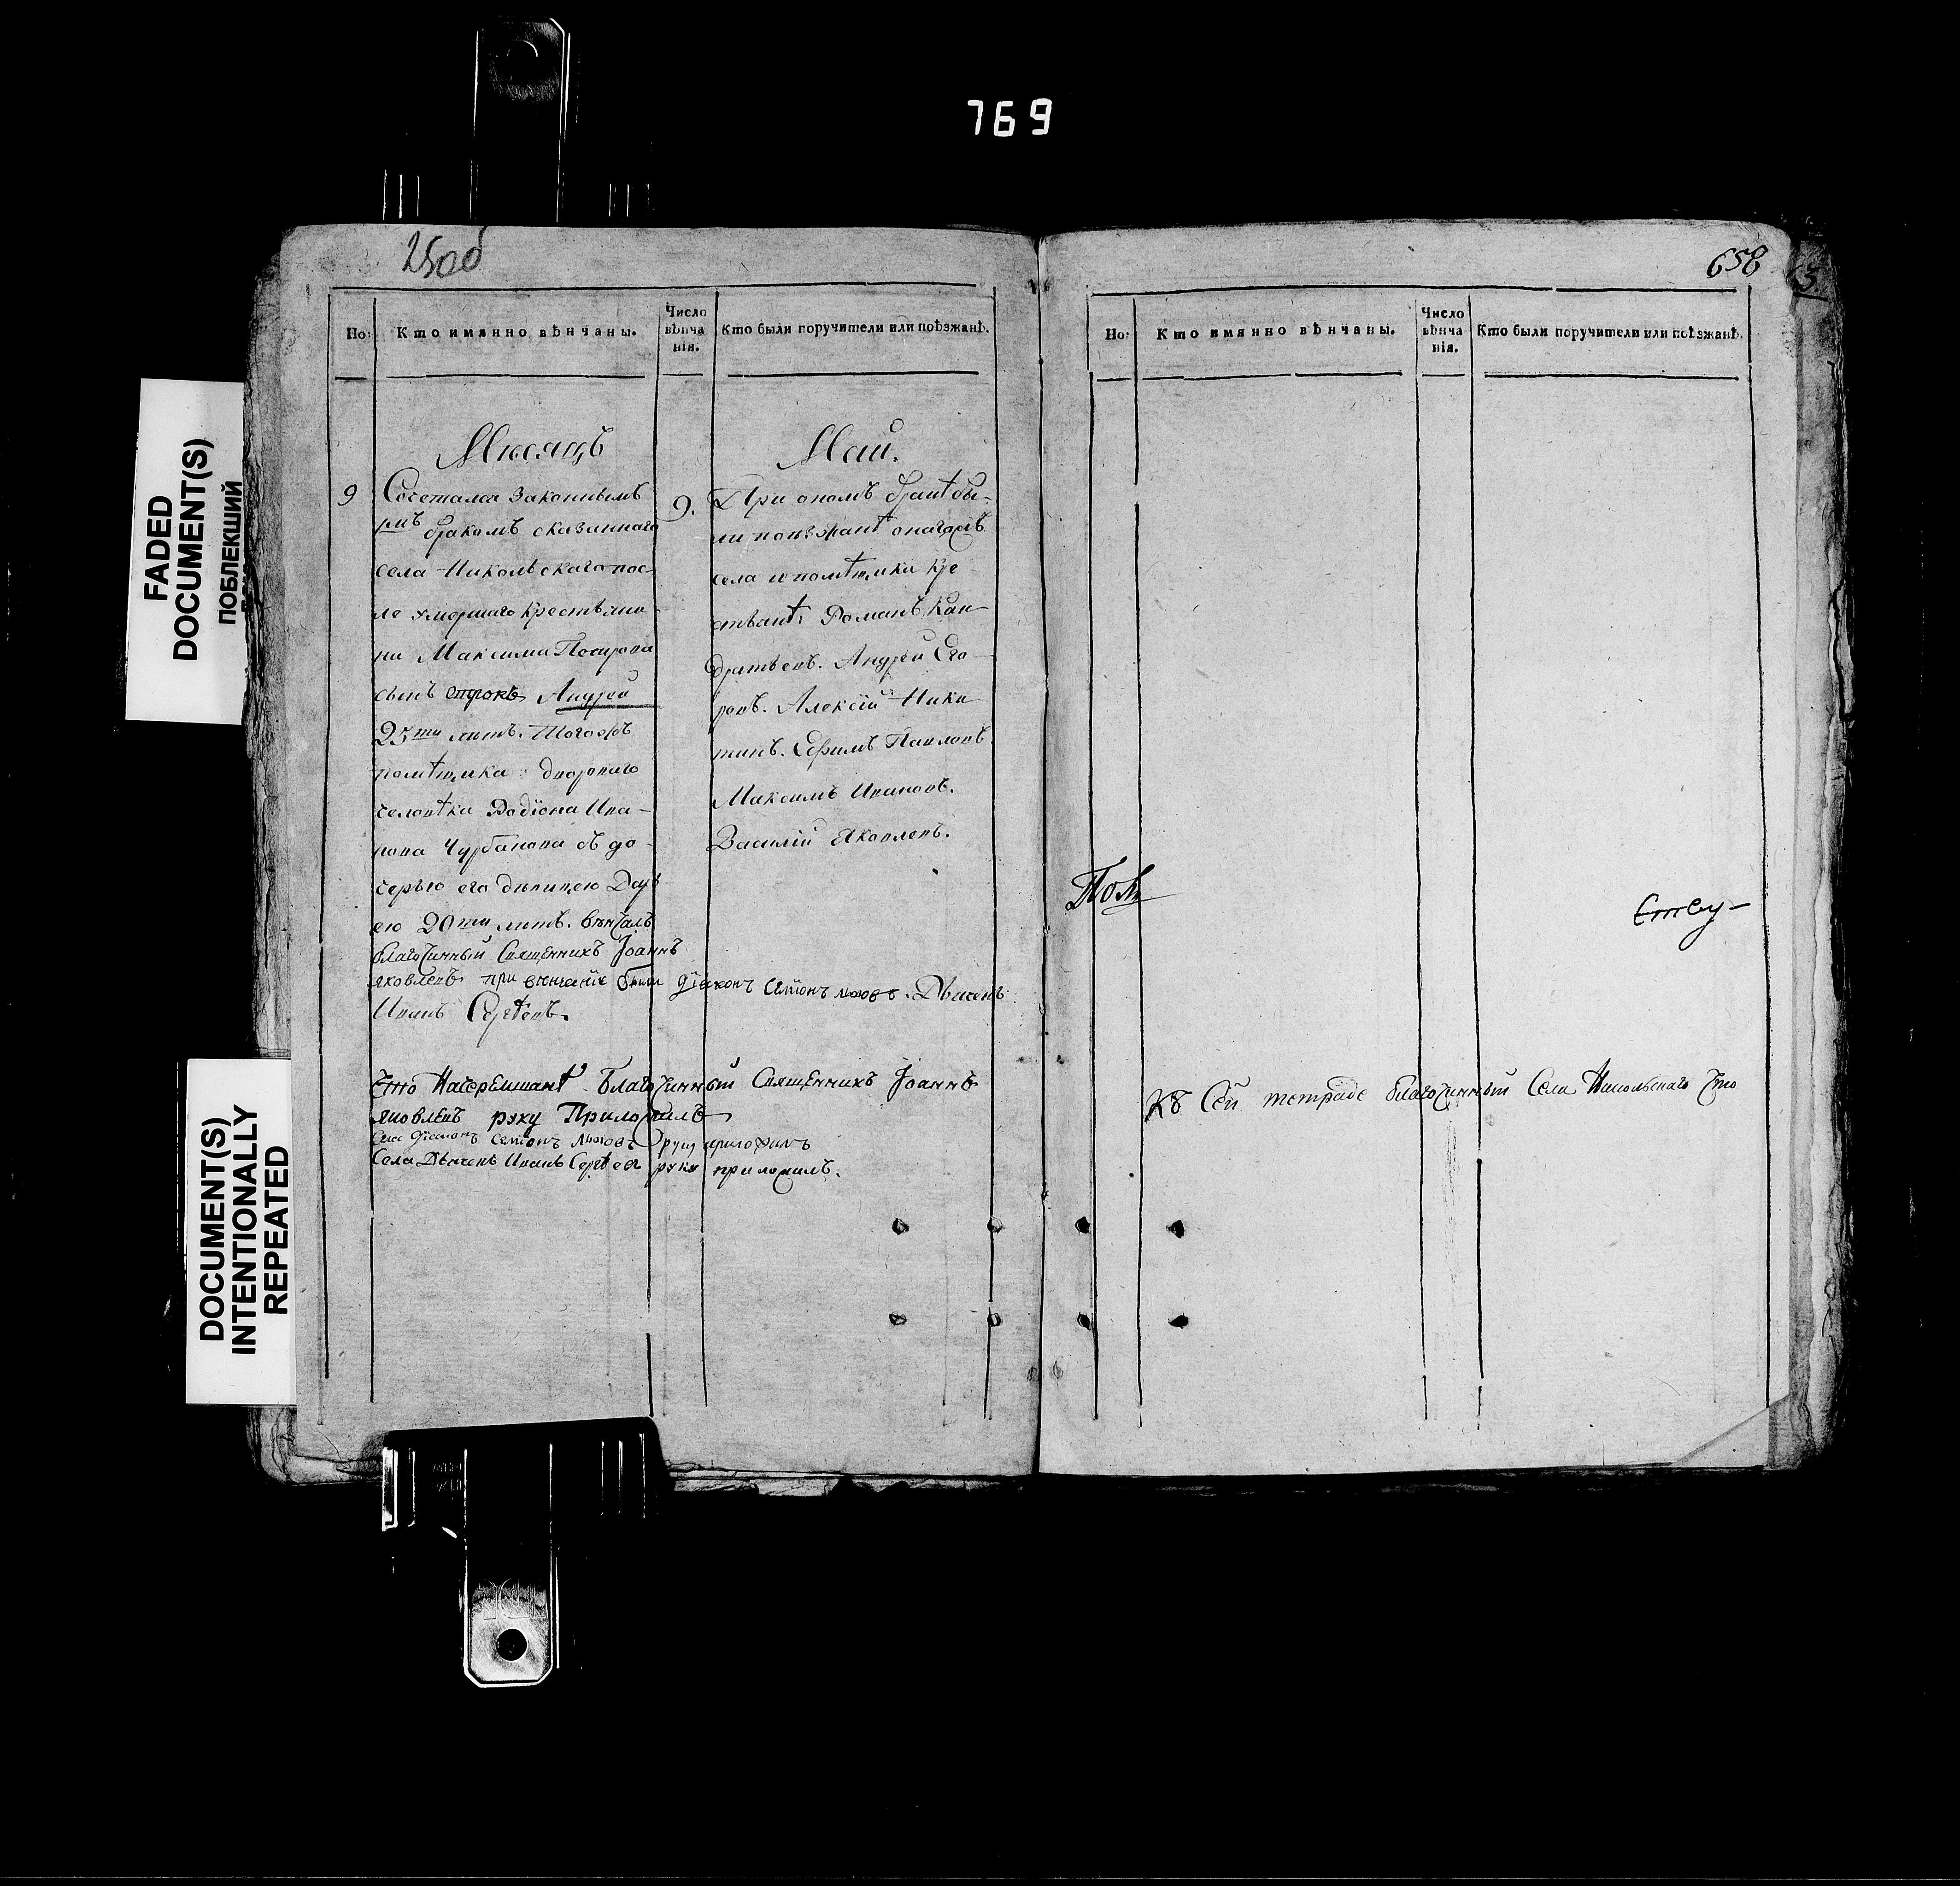 769
FADED
DOCUMENT(S)
ПОБЛЕКШИЙ
DOCUMENT(S)
INTENTIONALLY
REPEATED
250об
Но:
Кто имянно вѣнчаны.
Число
вѣнча
нія.
Кто были поручители или поѣзжанѣ.
Мѣсяцъ
9
Сочетался законнымъ
бракомъ сказаннаго
села Никольскаго пос-
ле умершаго крестьяни-
на Максима
сынъ Андрей
25ти лѣтъ. Тогожъ
помѣщика дворового
человѣка Родіона Ива-
нова Чурбанова съ до-
черью его дѣвицею Дарь
ею 20ти лѣтъ. вѣнчалъ
благочинный Священникъ Іоаннъ
Яковлевъ при вѣнчаніе были діаконъ Семіонъ Дьячекъ
Иванъ Сергѣевъ.
Май.
9.
При ономъ бракѣ бы-
ли поезжанѣ онагожъ
села и помѣщика кре-
стьянѣ: Романъ Кон-
дратьевъ. Андрей Его-
ровъ. Алексій Ники-
тинъ. Ефимъ Павловъ.
Максимъ Ивановъ.
Василій Яковлевъ.
Благочинный Священникъ Іоаннъ
Яковлевъ руку Приложилъ
діаконъ Семіонъ руку приложилъ
Села Дьячекъ Иванъ Сергѣев руку приложилъ.
658
Но:
Кто имянно вѣнчаны.
Число
вѣнча
нія.
Кто были поручители или поѣзжанѣ.
Къ Сей тетраде благочинный Села Никольскаго Что